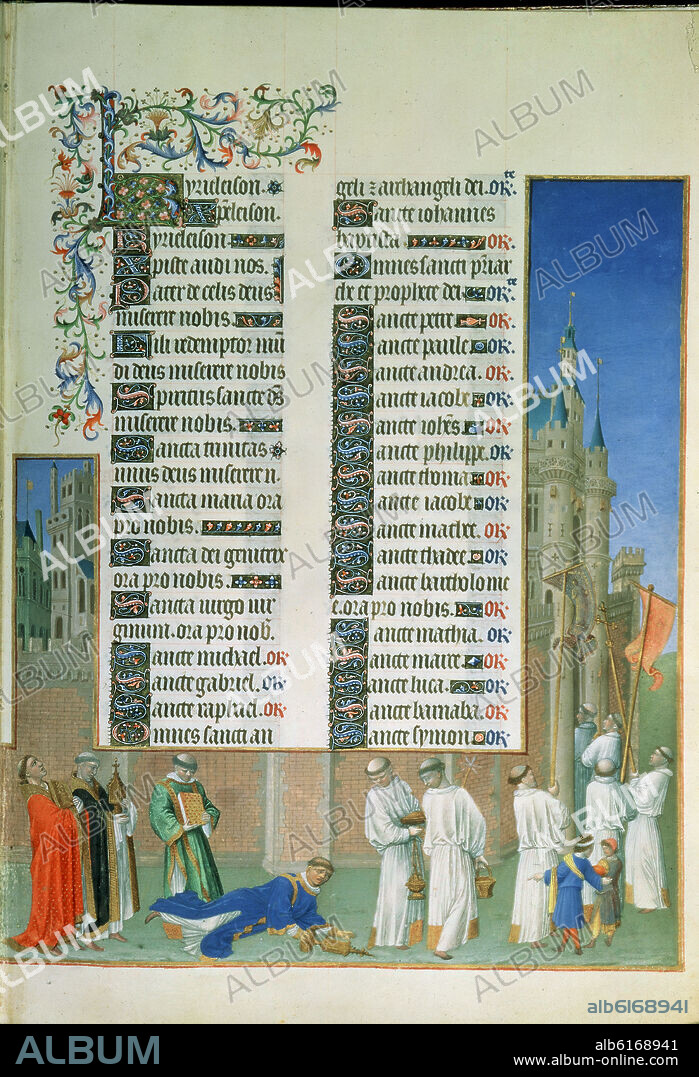 Kyrieleison.
Xpeleison.
Kyrieleison.
Xpiste audi nos.
Pater de celis deus
miserere nobis.
Fili redemptor mū
di deus miserere nobis
Spiritus sancte ds̄
miserere nobis.
Sancta trinitas
unus deus miserere n.
Sancta maria ora
pro nobis.
Sancta dei genitrix
ora pro nobis.
Sancta uirgo uir
ginum. ora pro nob̄.
Sancte michael. or̄.
Sancte gabriel. or̄.
Sancte raphael. or̄.
Omnes sancti an
geli ⁊ archangeli dei. or̄te
Sancte iohannes
baptista or̄.
Omnes sancti priar
che et prophete dei. or̄te
Sancte petre or̄.
Sancte paule or̄.
Sancte andrea. or̄.
Sancte iacobe or̄.
Sancte ioħes or̄.
Sancte philippe. or̄.
Sancte thoma or̄.
Sancte iacobe or̄.
Sancte mathee. or̄.
Sancte thadee or̄.
Sancte bartholome
e. ora pro nobis. or̄.
Sancte mathia. or̄.
Sancte marce or̄.
Sancte luca. or̄.
Sancte barnaba. or̄.
Sancte symon or̄.
ALBUM
alb6168941
ALBUM
alb6168941
www.album-online.com